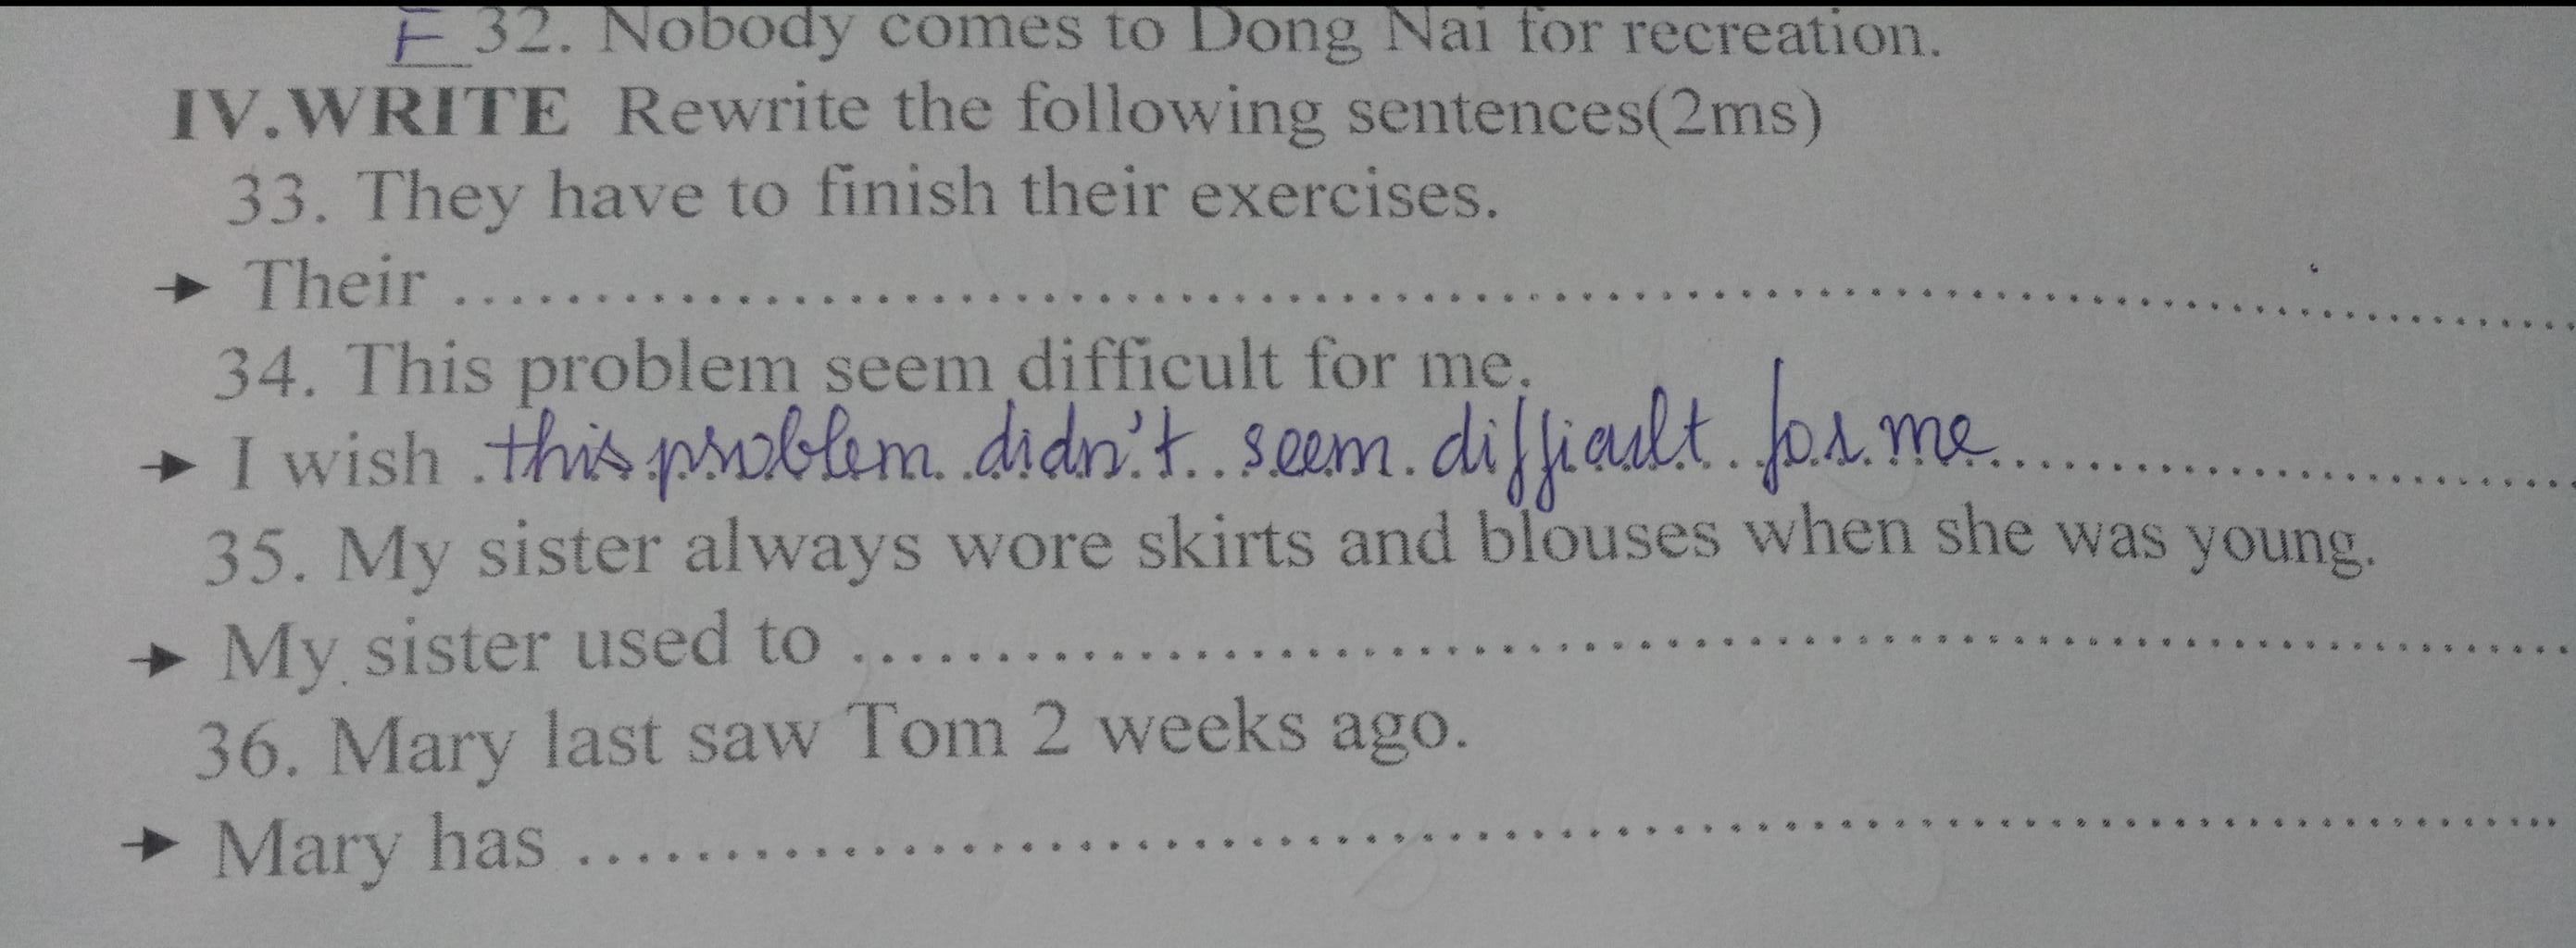 F 32. Nobody comes to Dong Nai for recreation.
IV.WRITE Rewrite the following sentences(2ms)
33. They have to finish their exercises.
→ Their ............................................................
34. This problem seem difficult for me.
→ I wish this problem didn't seem difficult for me ....................
35. My sister always wore skirts and blouses when she was young.
→ My sister used to ............................................................
36. Mary last saw Tom 2 weeks ago.
→ Mary has ............................................................